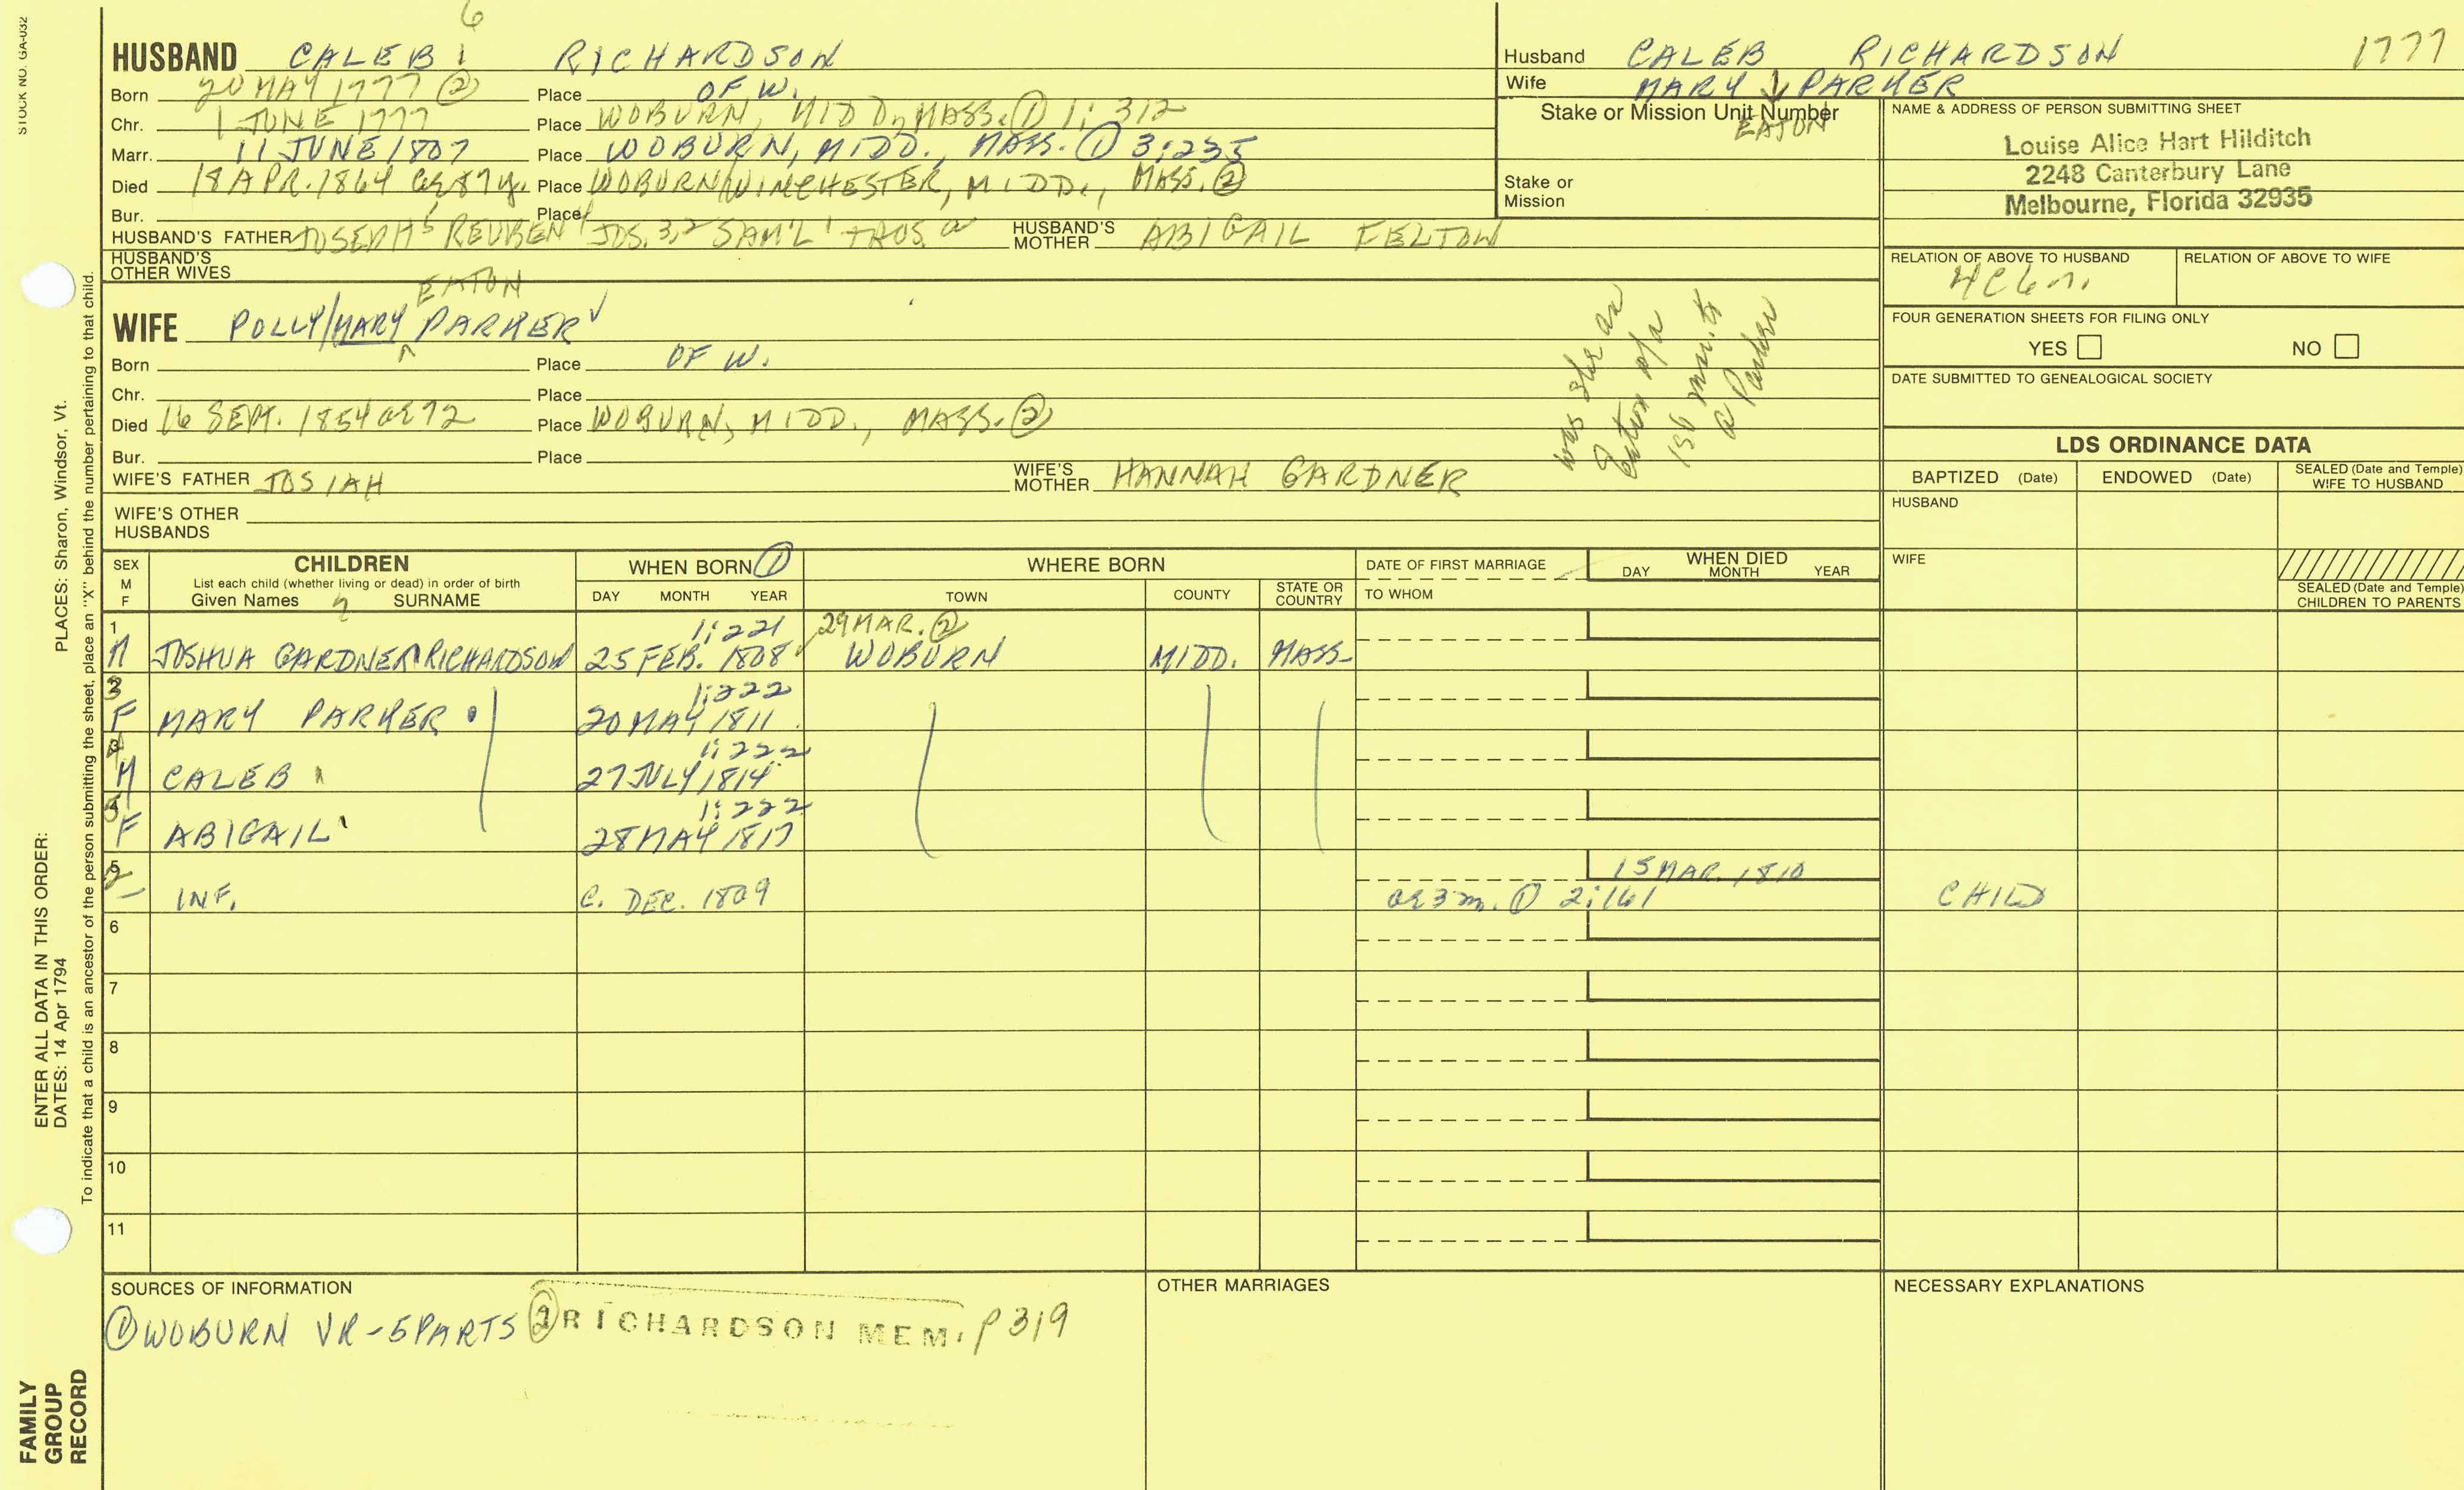 STOCK NO. GA-032
6
HUSBAND CALEB RICHARDSON
Born 20 MAY 1777 ② Place OF W.
Chr. 1 JUNE 1777 Place WOBURN, MIDD., MASS. ① 1:312
Marr. 11 JUNE 1807 Place WOBURN, MIDD., MASS. ① 3:235
Died 18 APR. 1864 ae 87y. Place WOBURN/WINCHESTER, MIDD., MASS. ②
Bur. Place
HUSBAND'S FATHER JOSEPH 5 REUBEN 4 JOS. 3,2 SAM'L 1 THOS. a HUSBAND'S MOTHER ABIGAIL FELTON
HUSBAND'S OTHER WIVES
EATON
WIFE POLLY/MARY ^ PARKER ✓
Born Place OF W.
Chr. Place
Died 16 SEPT. 1854 ae 72 Place WOBURN, MIDD., MASS. ②
Bur. Place
WIFE'S FATHER JOSIAH WIFE'S MOTHER HANNAH GARDNER
WIFE'S OTHER HUSBANDS
was she an
Eaton o/a
1st mar. to
a Parker
Husband CALEB RICHARDSON 1777
Wife MARY ↓ PARKER
Stake or Mission Unit Number
EATON
Stake or Mission
NAME & ADDRESS OF PERSON SUBMITTING SHEET
Louise Alice Hart Hilditch
2248 Canterbury Lane
Melbourne, Florida 32935
RELATION OF ABOVE TO HUSBAND RELATION OF ABOVE TO WIFE
4C6r.
FOUR GENERATION SHEETS FOR FILING ONLY
YES NO
DATE SUBMITTED TO GENEALOGICAL SOCIETY
LDS ORDINANCE DATA
BAPTIZED (Date) ENDOWED (Date) SEALED (Date and Temple) WIFE TO HUSBAND
HUSBAND
WIFE
SEALED (Date and Temple) CHILDREN TO PARENTS
SEX M F
CHILDREN
List each child (whether living or dead) in order of birth
Given Names SURNAME
WHEN BORN ①
DAY MONTH YEAR
WHERE BORN
TOWN COUNTY STATE OR COUNTRY
DATE OF FIRST MARRIAGE
TO WHOM
WHEN DIED
DAY MONTH YEAR
1 1:221 29 MAR. ②
M JOSHUA GARDNER RICHARDSON 25 FEB. 1808 WOBURN MIDD. MASS.
3 1:222
F MARY PARKER 20 MAY 1811
4 1:222
M CALEB 27 JULY 1814
5 1:222
F ABIGAIL 28 MAY 1817
2 15 MAR. 1810
– INF. C. DEC. 1809 ae 3m. ① 2:161 CHILD
6
7
8
9
10
11
SOURCES OF INFORMATION
① WOBURN VR-5 PARTS ② RICHARDSON MEM. P 319
OTHER MARRIAGES
NECESSARY EXPLANATIONS
ENTER ALL DATA IN THIS ORDER:
DATES: 14 Apr 1794
PLACES: Sharon, Windsor, Vt.
To indicate that a child is an ancestor of the person submitting the sheet, place an "X" behind the number pertaining to that child.
FAMILY
GROUP
RECORD